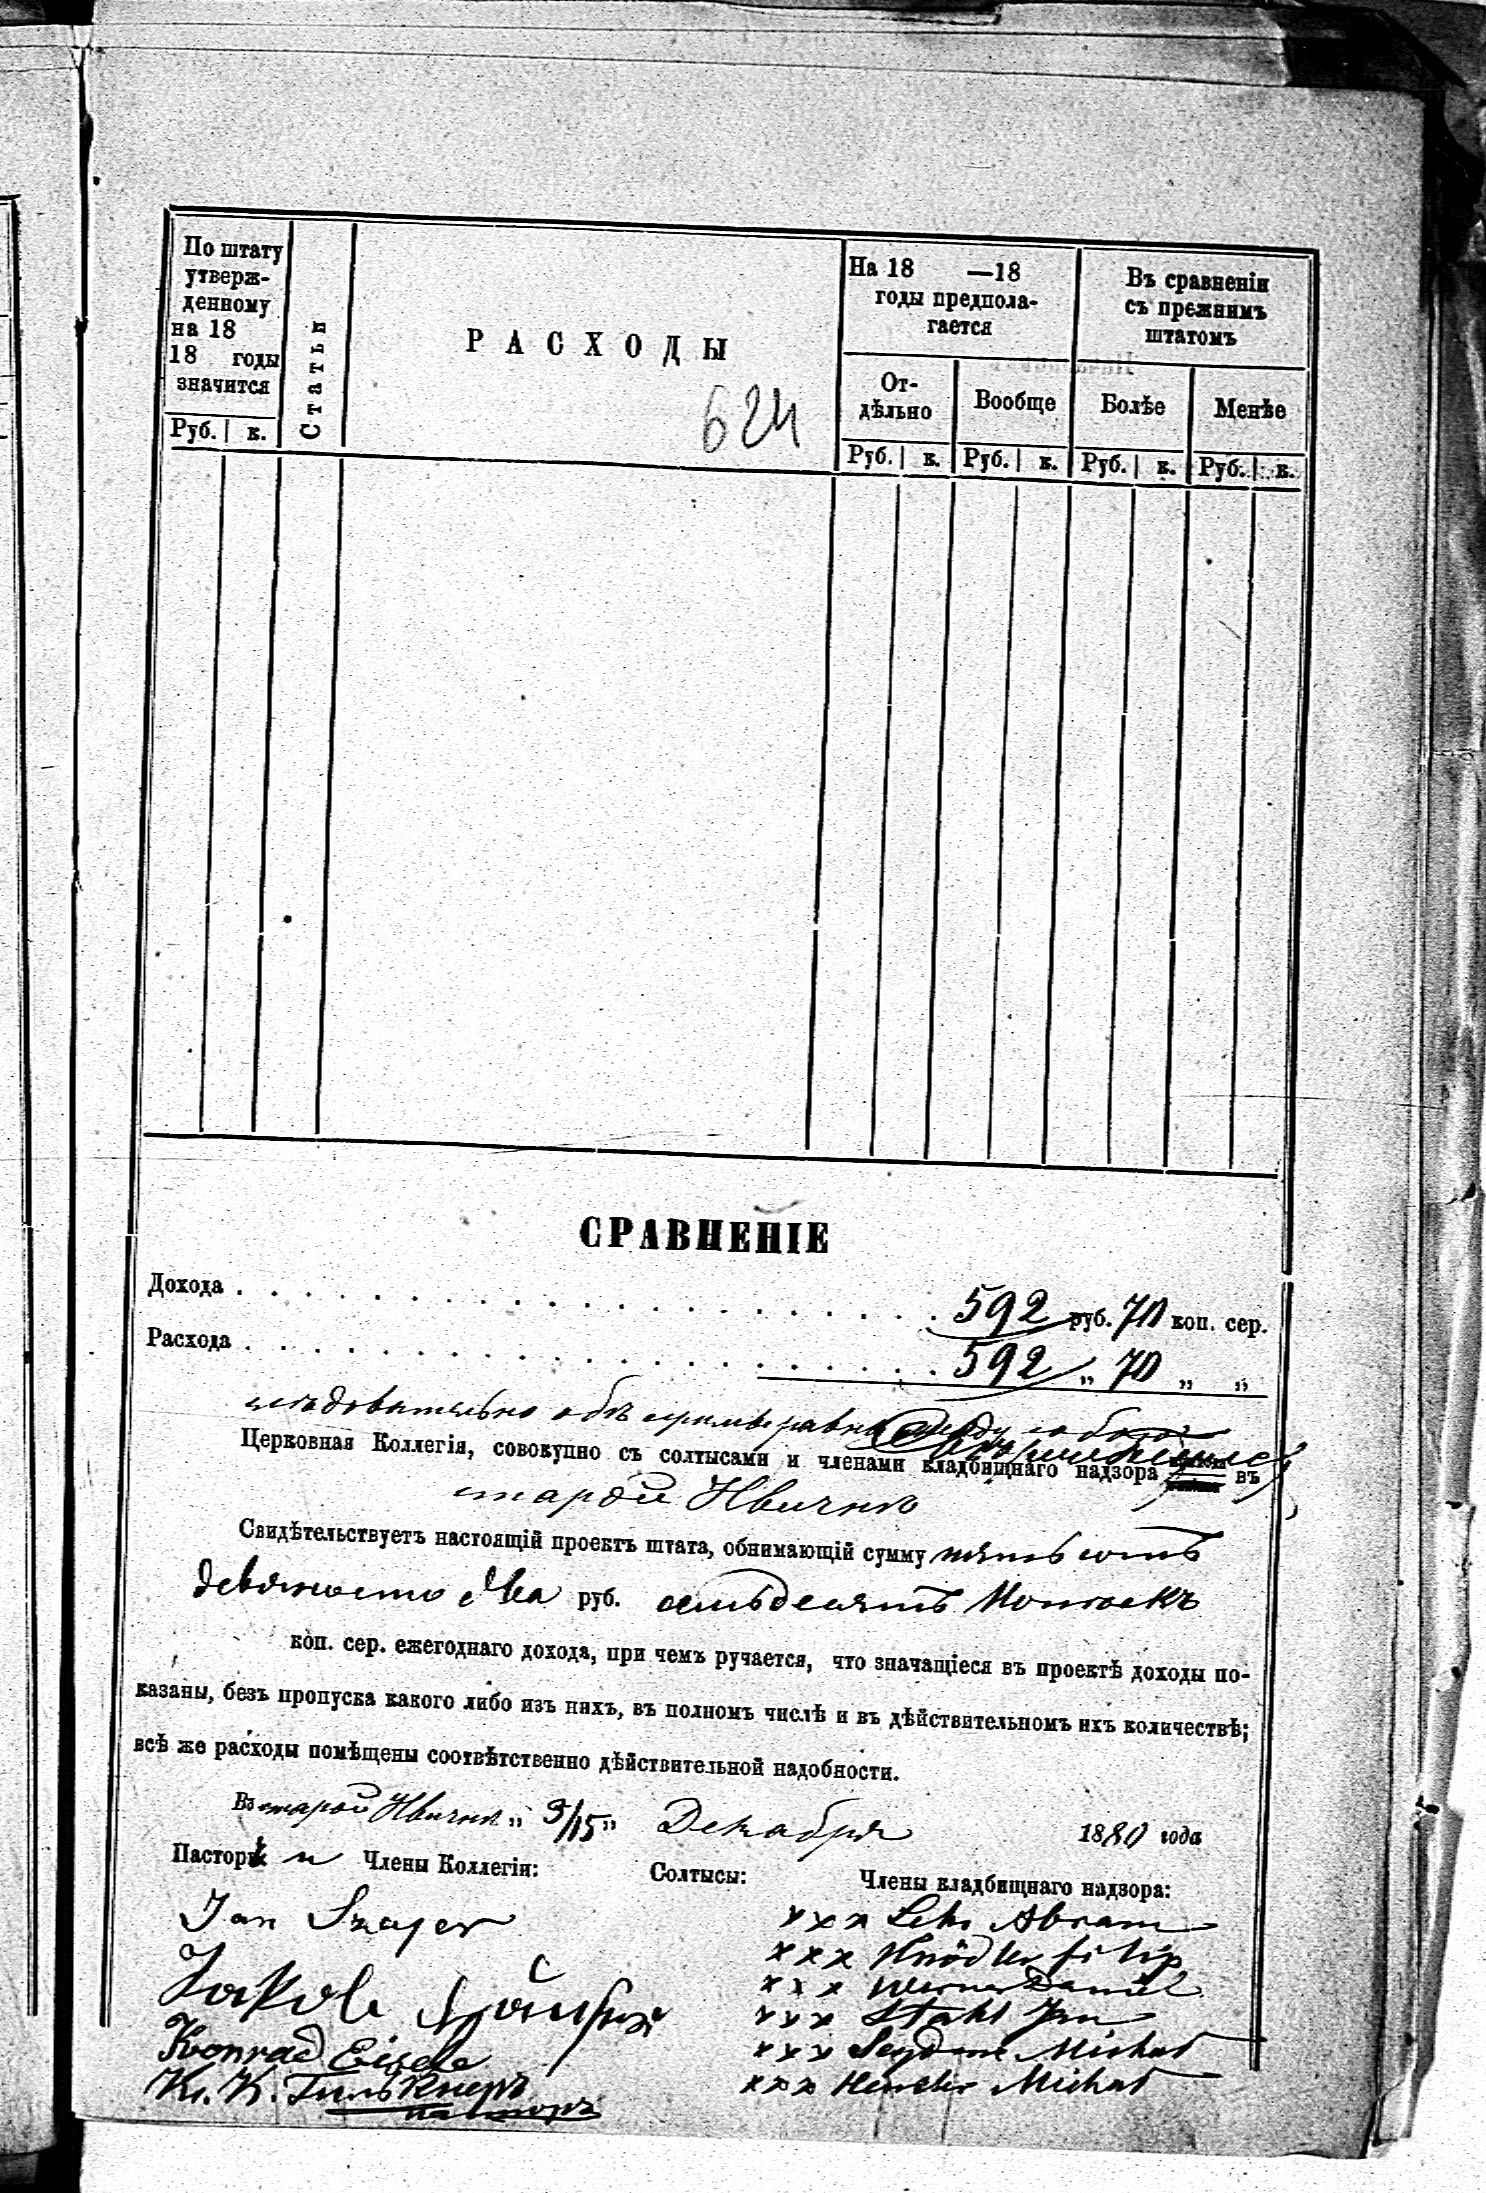 По штату
утверж-
денному
на 18
18 годы
значится
Руб. к.
Статьи
РАСХОДЫ
624
На 18 —18
годы предпола-
гается
От-
дѣльно
Вообще
Руб. к. Руб. к.
Въ сравненіи
съ прежнимъ
штатомъ
Болѣе
Менѣе
Руб. к. Руб. к.
СРАВНЕНІЕ
Дохода . . . 592 руб. 70 коп. сер.
Расхода . . . 592 „ 70 „ „
слѣдовательно обѣ суммы равны
Церковная Коллегія, совокупно съ солтысами и членами кладбищнаго надзора въ
старой Ивичнѣ
Свидѣтельствуетъ настоящій проектъ штата, обнимающій сумму пять сотъ
девяносто два руб. семьдесятъ Копѣекъ
коп. сер. ежегоднаго дохода, при чемъ ручается, что значащіеся въ проектѣ доходы по-
казаны, безъ пропуска какого либо изъ нихъ, въ полномъ числѣ и въ дѣйствительномъ ихъ количествѣ;
всѣ же расходы помѣщены соотвѣтственно дѣйствительной надобности.
Въ старой Ивичнѣ „ 3/15 „ Декабря 1880 года
Пасторъ и Члены Коллегіи: Солтысы: Члены кладбищнаго надзора:
Jan Szajer
Jakob
Konrad Eisele
К. К.
пасторъ
xxx Abram
xxx Knödler Filip
xxx Werner Daniel
xxx Stahl Jan
xxx Michał
xxx Henzler Michał